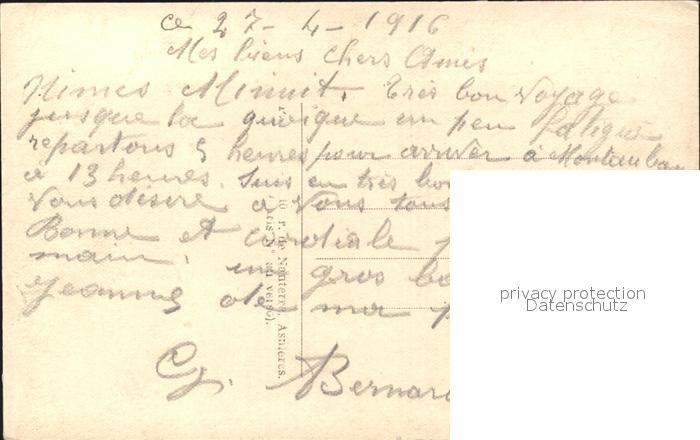 ce 27-4-1916
Mes biens chers Amis
Nimes Minuit. très bon voyage
jusque la quoique un peu fatigué
repartons 5 heures pour arriver à Montauban
à 13 heures. Suis en très bon
vous désire a vous tous
Bonne et cordiale
main. un gros
Jeanne de ma
G. Bernard
de Nanterre, Asnières.
privacy protection
Datenschutz